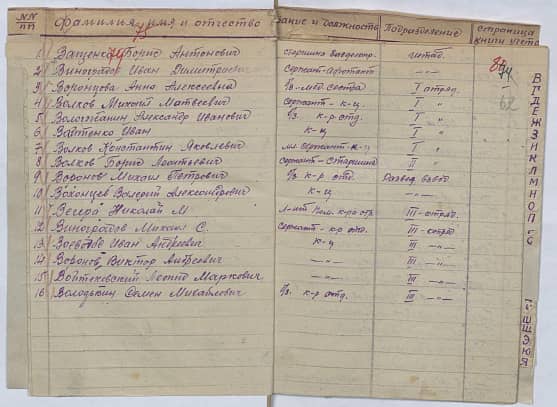 NN пп фамилия, имя и отчество звание и должность Подразделение страница книги учета
73
1 Ващенко Борис Антонович старшина штаб. 87
2 Виноградов Иван Димитриевич сержант —„— 74
3 Воронцова Анна Алексеевна б/з. мед. сестра I отряд. —
4 Волков Михаил Матвеевич сержант - к-ц I „ 62
5 Вологжанин Александр Иванович б/з. к-р отд. I „
6 Вайтенко Иван к-ц I „
7 Волков Константин Яковлевич мл сержант - к-ц I „
8 Волков Борис сержант - старшина II „
9 Воронов Михаил Петрович б/з к-р отд. Развед. взвод
10 Валерий Александрович к-ц —„—
11 Вегера Николай М л-нт III - отряд.
12 Виноградов Михаил С. сержант - к-р отд. III -
13 Иван Андреевич к-ц III —„—
14 Воронов Виктор Андреевич —„— III —„—
15 Войтеховский Леонид Маркович —„— III —„—
16 Володькин Семен Михайлович б/з. к-р отд. III —„—
В Г Д Е Ж З И К Л М Н О П
Э Ю Я